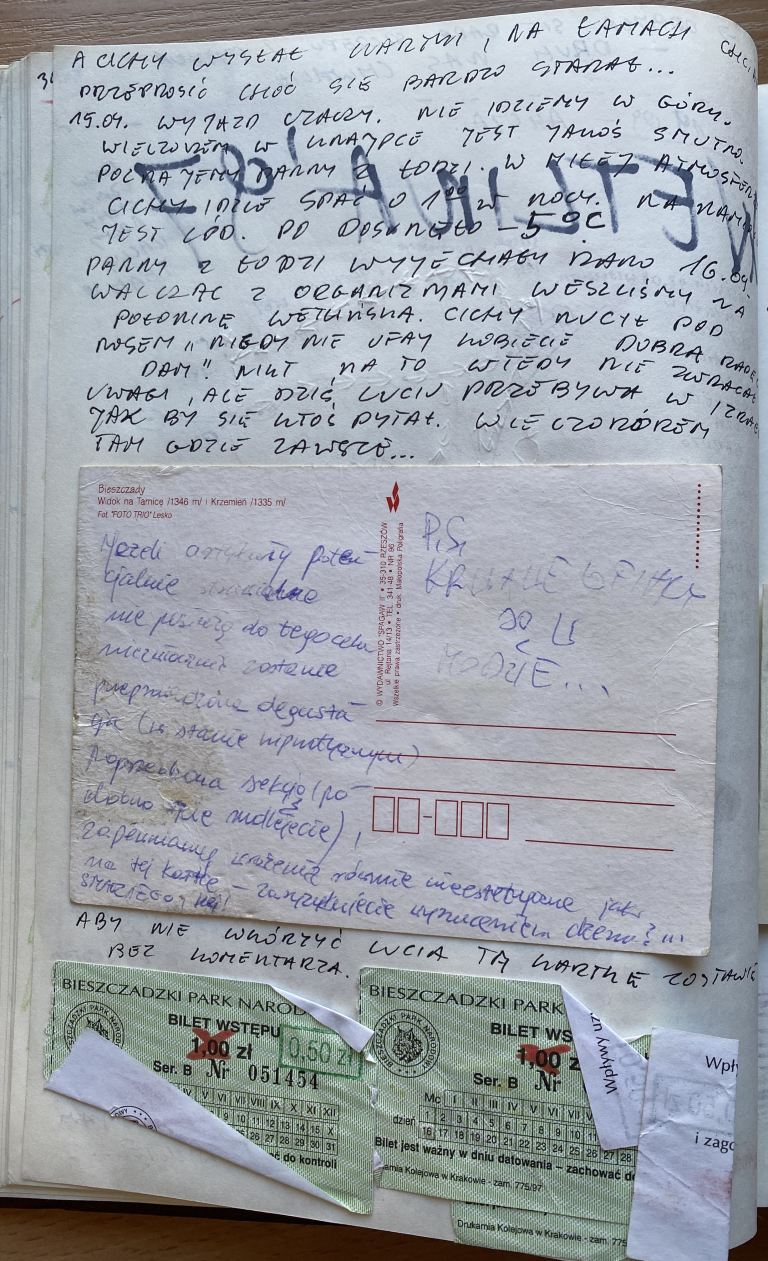 A CICHY WYSŁAŁ KARTKI I NA ŁAMACH CHCIAŁ
PRZEPROSIĆ CHOĆ SIĘ BARDZO STARAŁ...
15.09. WYJAZD CZACHY. NIE IDZIEMY W GÓRY.
WIECZOREM W KNAJPCE JEST JAKOŚ SMUTNO.
POZNAJEMY PANNY Z ŁODZI. W MIŁEJ ATMOSFERZE
CICHY IDZIE SPAĆ O 1⁰⁰ W NOCY. NA
JEST LÓD. PO -5°C
PANNY Z ŁODZI WYJECHAŁY RANO 16.09.
WALCZĄC Z ORGANIZMAMI WESZLIŚMY NA
POŁONINĘ WETLIŃSKĄ. CICHY NUCIŁ POD
NOSEM „NIGDY NIE UFAJ KOBIECIE DOBRĄ RADĘ CI
DAM". NIKT NA TO WTEDY NIE ZWRACAŁ
UWAGI, ALE DZIŚ LUCIU PRZEBYWA W
JAK BY SIĘ KTOŚ PYTAŁ. WIECZOROREM
TAM GDZIE ZAWSZE...
WETLINA '97
Bieszczady
Widok na Tarnicę /1346 m/ i Krzemień /1335 m/
Fot. "FOTO TRIO" Lesko
© WYDAWNICTWO "SPAGAW II" • 35-310 RZESZÓW
ul. Rejtana 14/13 • TEL. 341-48 • NR 96
Wszelkie prawa zastrzeżone • druk. Małopolska Poligrafia
Jeżeli artykuły poten-
cjalnie
nie posłużą do tego celu
niezwłocznie zostanie
przeprowadzona degusta-
cja (w stanie nieprzytomnym)
Poproszona sekcja (po-
dobno nie mdlejecie),
zapewniamy wrażenia równie nieestetyczne jak
na tej kartce – 
P.S.
SĄ W
MODZIE...
ABY NIE WKÓRZYĆ LUCIA TĄ KARTKĘ ZOSTAWIĘ
BEZ KOMENTARZA.
BIESZCZADZKI PARK NAROD
BILET WSTĘPU
1,00 zł
0,50 zł
Ser. B Nr 051454
IV V VI VII VIII IX X XI XII
9 10 11 12 13 14 15 X
26 27 28 29 30 31
ć do kontroli
BIESZCZADZKI PARK
BILET WS
1,00 z
Ser. B Nr
Mc I II III IV V VI VII V
dzień 1 2 3 4 5 6 7 8 9 10 11
16 17 18 19 20 21 22 23 24 25 26 27 28
Bilet jest ważny w dniu datowania – zachować do
arnia Kolejowa w Krakowie - zam. 775/97
Drukarnia Kolejowa w Krakowie - zam. 775
Wpływy uz
Wpły
i zago